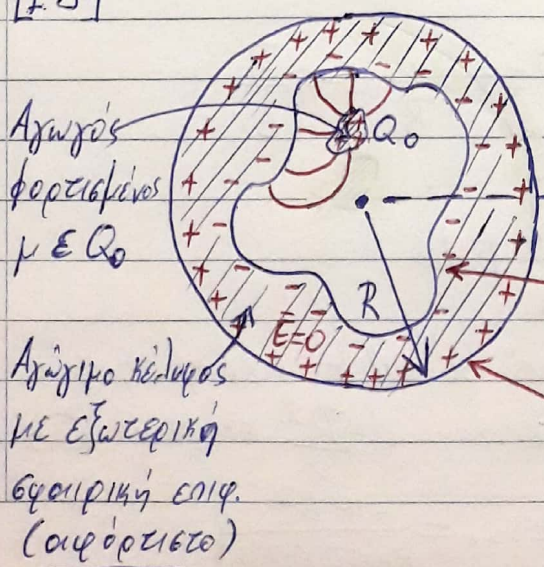 Αγωγός
φορτισμένος
με Q₀
Q₀
R
E=0
Αγώγιμο κέλυφος
με εξωτερική
σφαιρική επιφ.
(αφόρτιστο)